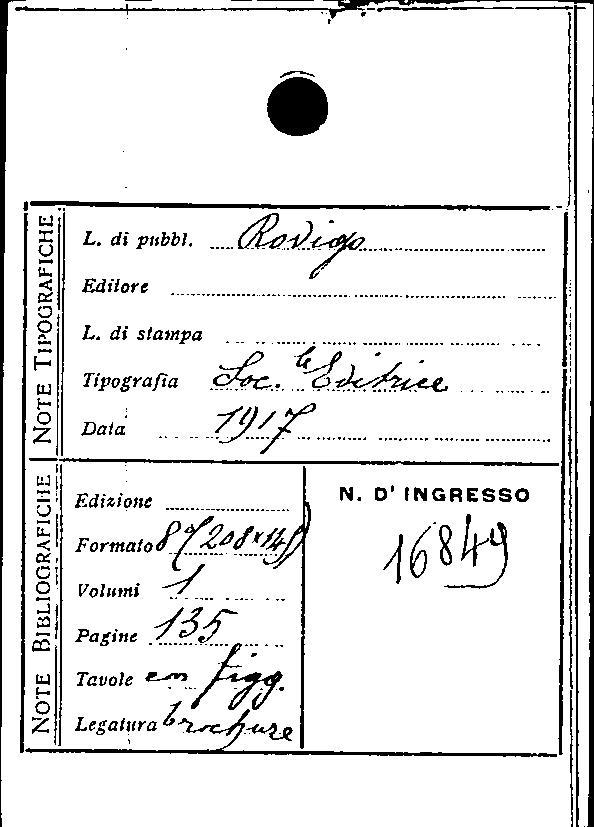 NOTE TIPOGRAFICHE
L. di pubbl. Rovigo
Editore
L. di stampa
Tipografia Soc. le Editrice
Data 1917
NOTE BIBLIOGRAFICHE
Edizione
Formato 8° (208x145)
Volumi 1
Pagine 135
Tavole con figg.
Legatura brochure
N. D' INGRESSO
16849